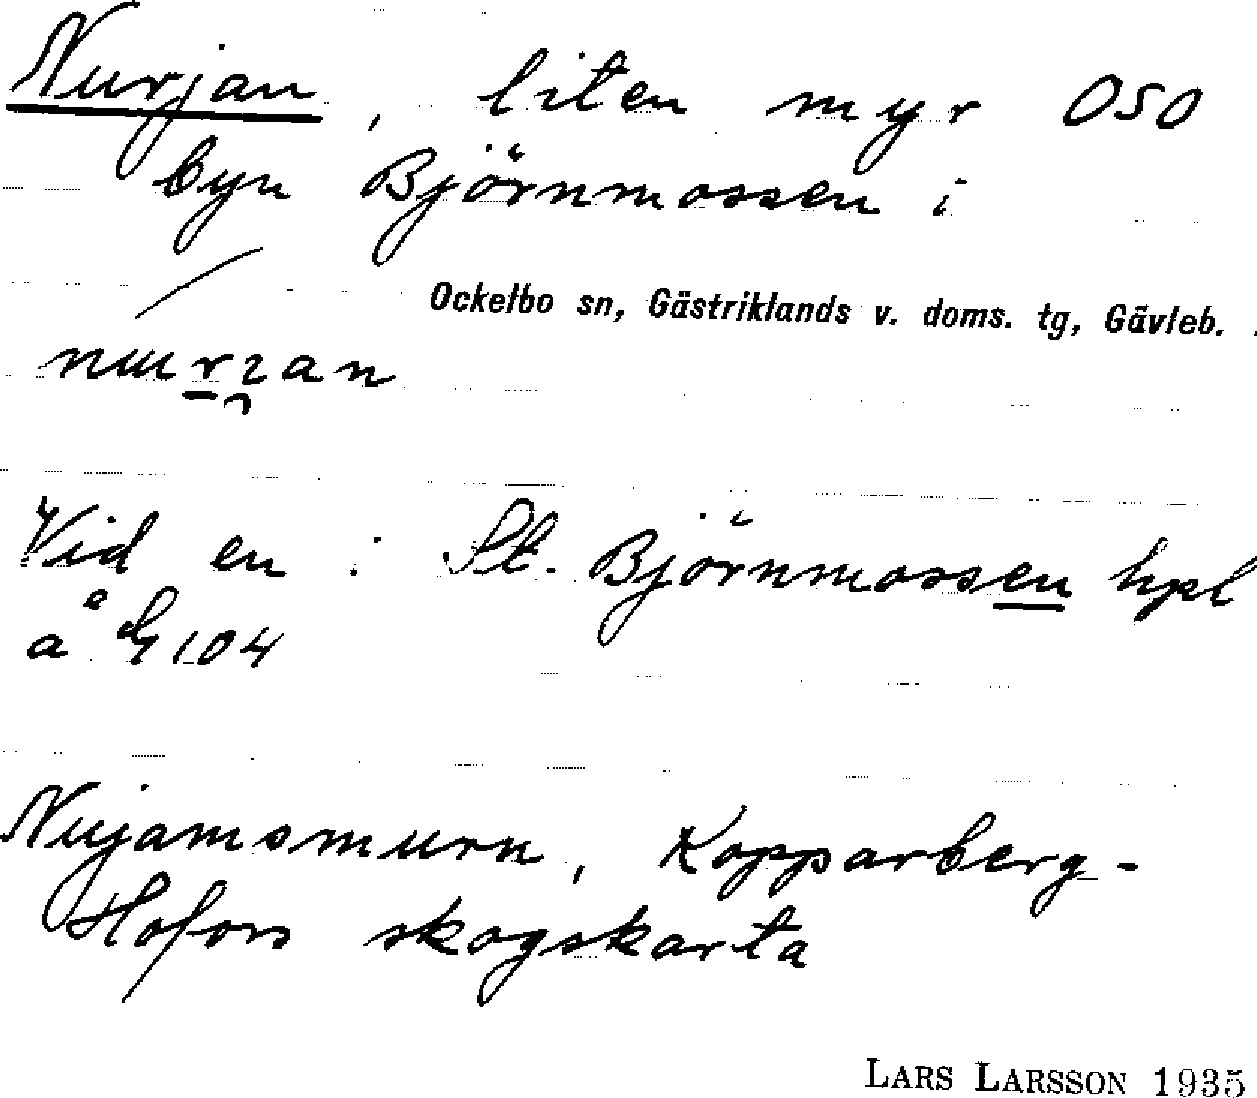 Nurjan, liten myr OSO
byn Björnmossen i
Ockelbo sn, Gästriklands v. doms. tg, Gävleb.
Vid en i St. Björnmossen hpl
å G 104
Nujamsmurn, Kopparberg-
Hofors skogskarta
LARS LARSSON 1935